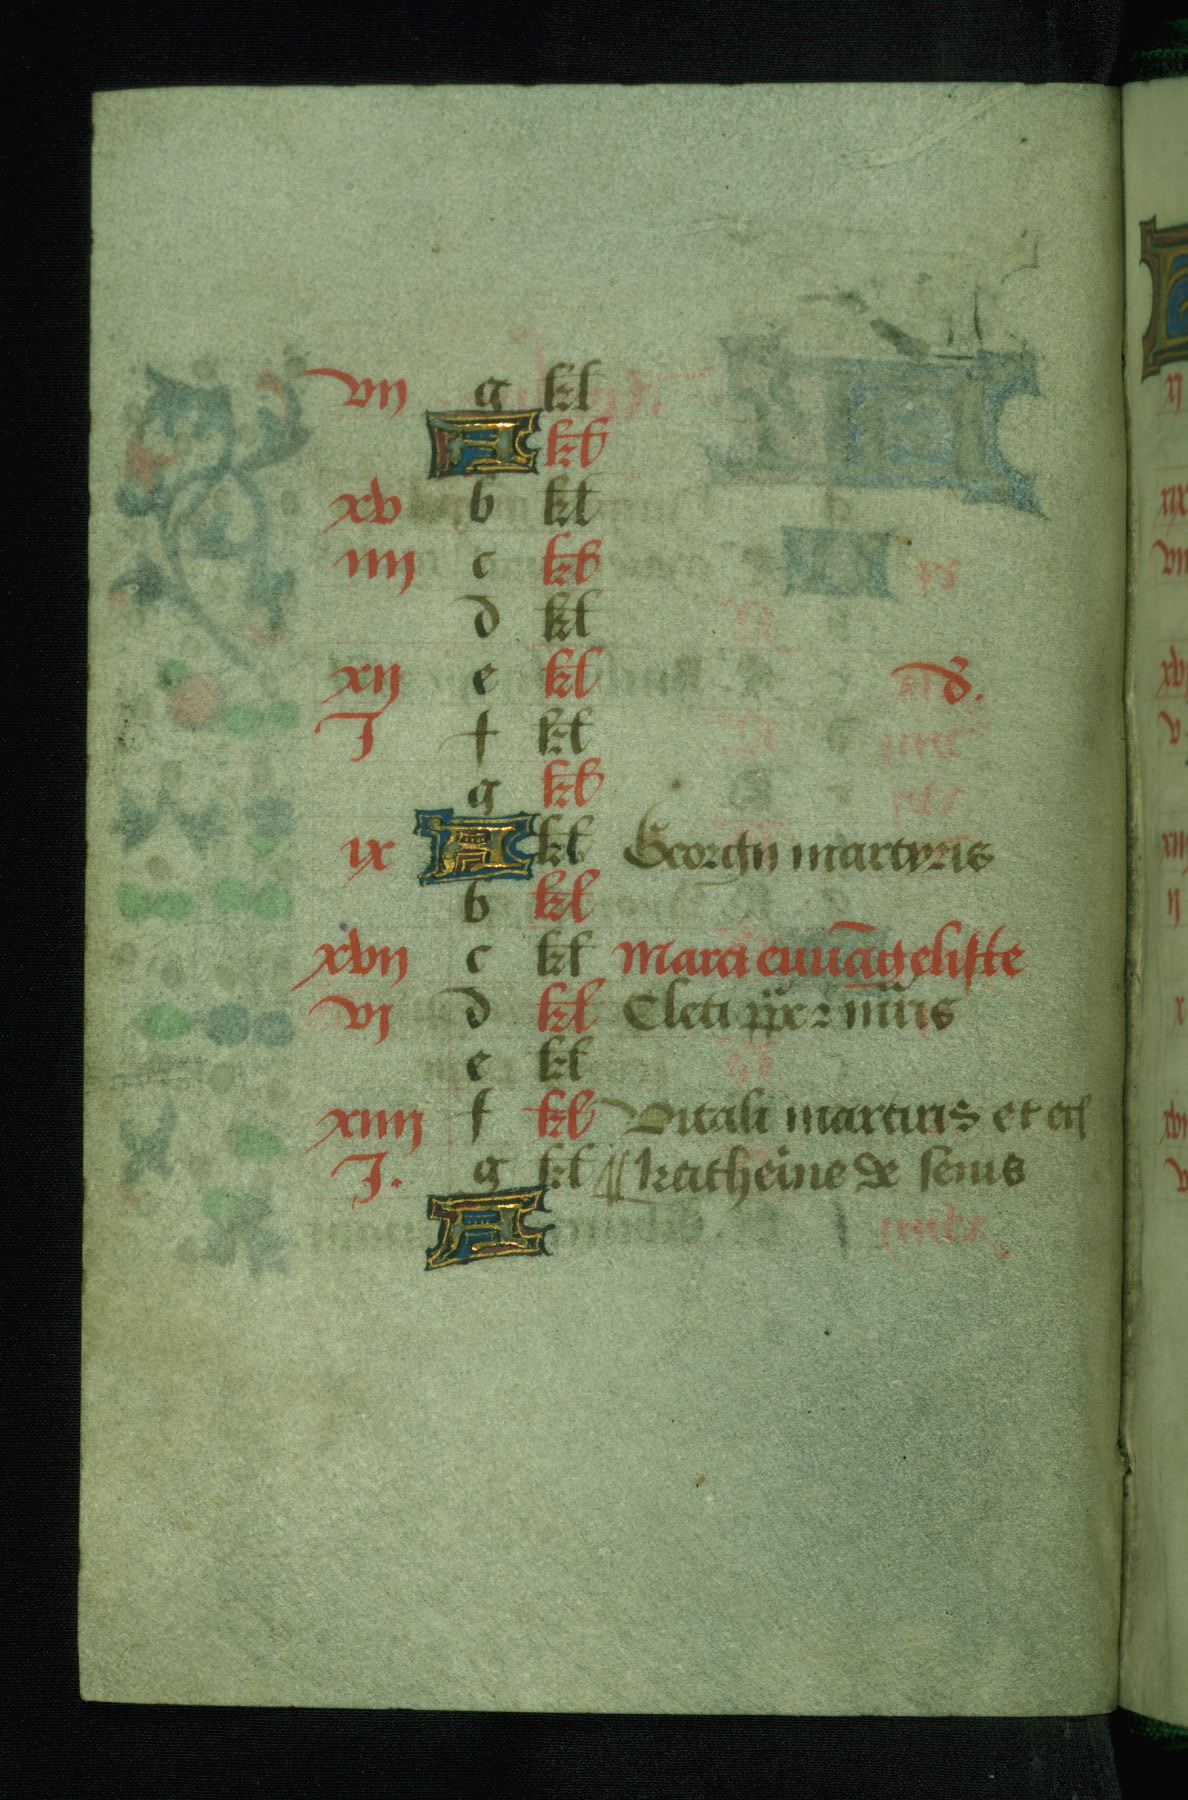 vij g kl
A kl
xv b kl
iiij c kl
d kl
xij e kl d.
J f kl
g kl
ix A kl Georgij martyris
b kl
xvij c kl Marci euuāgeliste
vj d kl Cleti
e kl
xiiij f kl Vitali martiris et
J. g kl katherine de senis
A